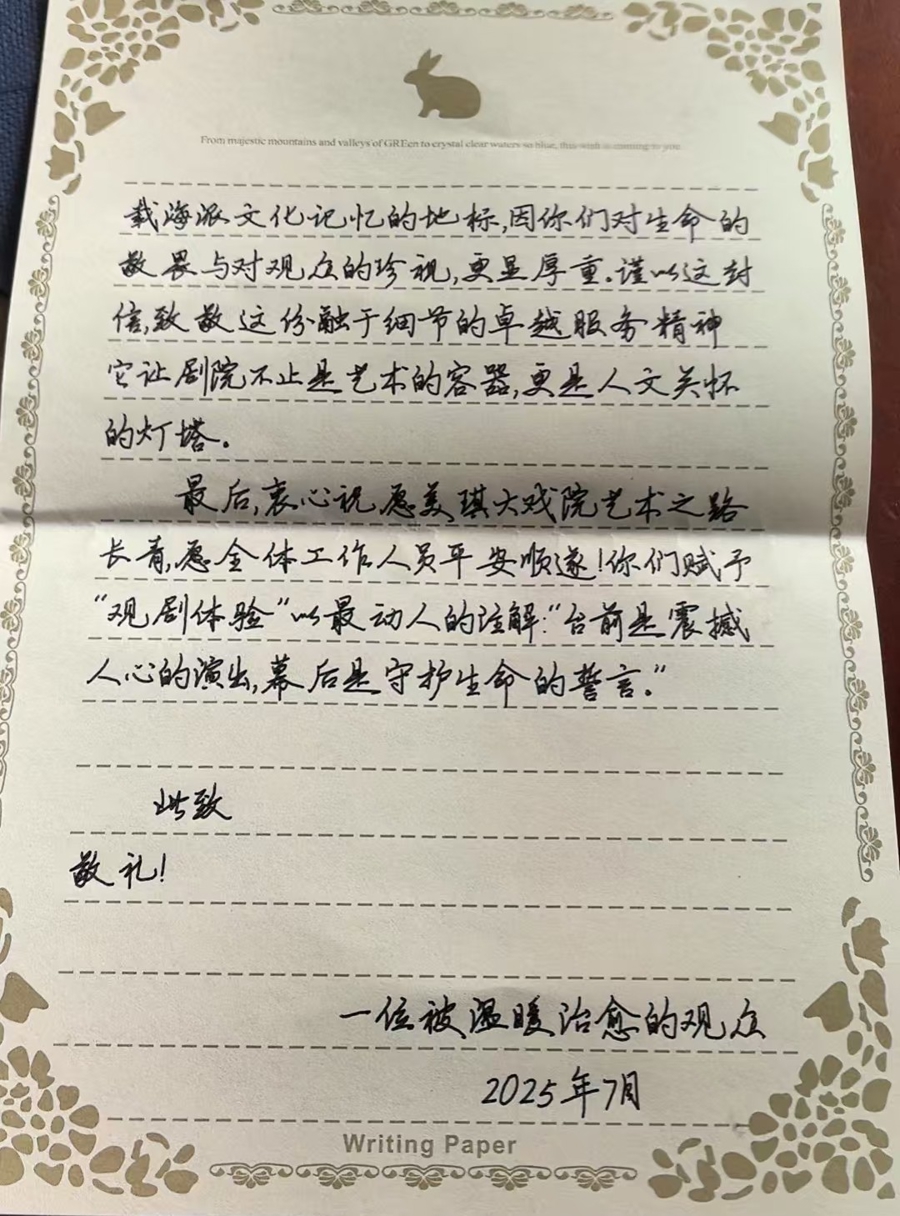 From majestic mountains and valleys of GREen to crystal clear waters so blue, this wish is coming to you.
载海派文化记忆的地标,因你们对生命的
敬畏与对观众的珍视,更显厚重。谨以这封
信,致敬这份融于细节的卓越服务精神
它让剧院不止是艺术的容器,更是人文关怀
的灯塔。
最后,衷心祝愿美琪大戏院艺术之路
长青,愿全体工作人员平安顺遂!你们赋予
“观剧体验”以最动人的注解:“台前是震撼
人心的演出,幕后是守护生命的誓言。”
此致
敬礼!
一位被温暖治愈的观众
2025年7月
Writing Paper